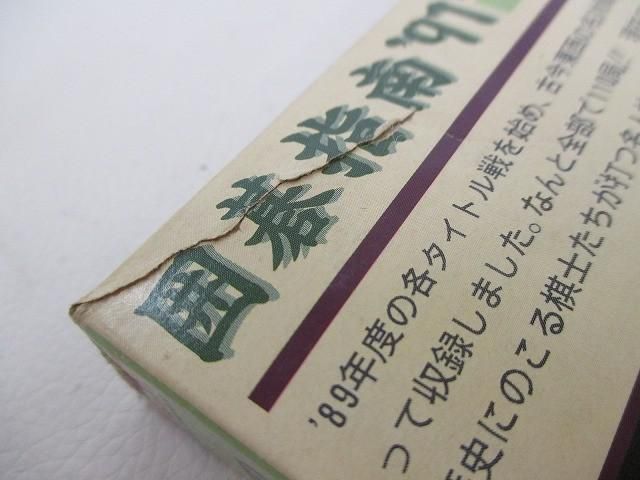 囲碁指南'91
'89年度の各タイトル戦を始め、古今東西の
って収録しました。なんと全部で110局!!
史にのこる棋士たちが打つ名